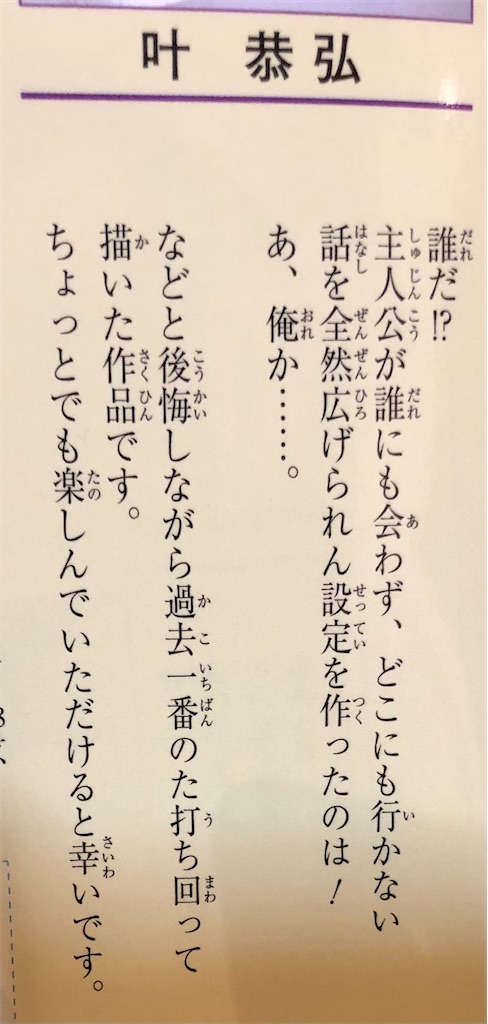 叶 恭弘
誰だ!?
主人公が誰にも会わず、どこにも行かない
話を全然広げられん設定を作ったのは!
あ、俺か……。
などと後悔しながら過去一番のた打ち回って
描いた作品です。
ちょっとでも楽しんでいただけると幸いです。